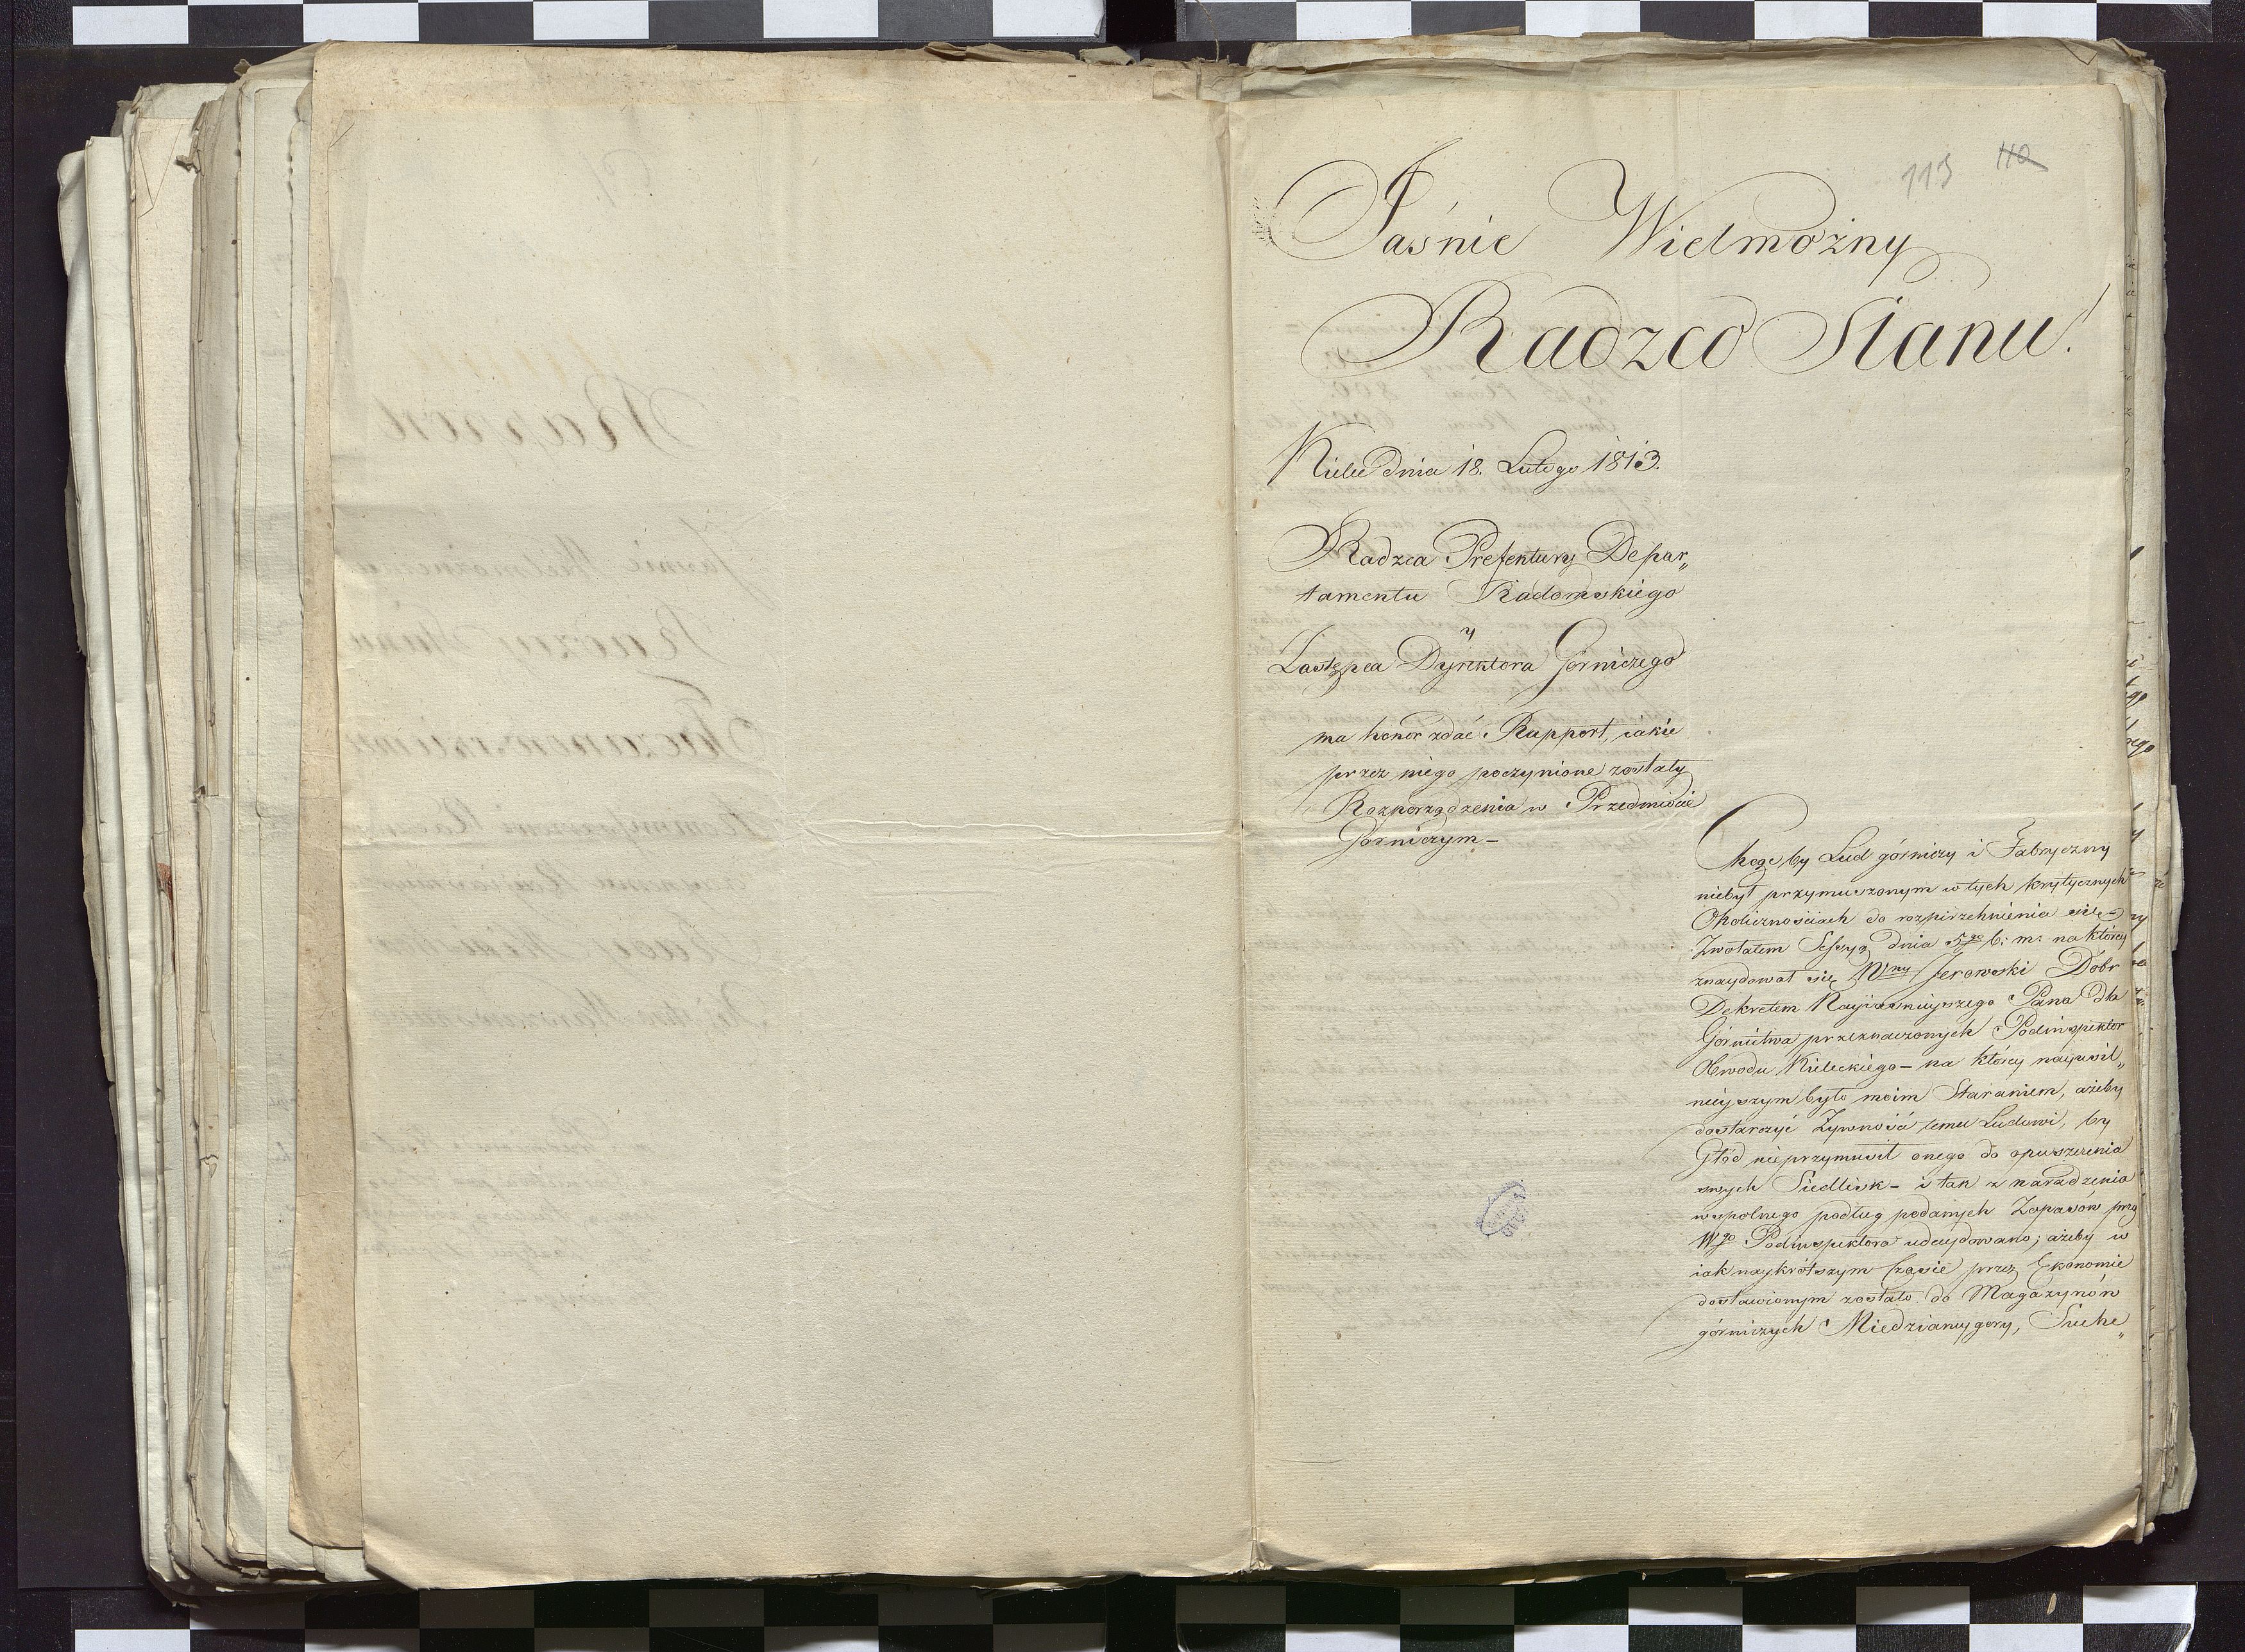 113 110
Jaśnie Wielmożny
Radzco Stanu!
Kielce dnia 18. Lutego 1813.
Radzca Prefektury Depar„
tamentu Radomskiego
y
Zastępca Dyrektora Górniczego
ma honor zdać Rapport, iakie
przez niego poczynione zostały
Rozporządzenia w Przedmiocie
Górniczym –
Chcąc by Lud górniczy i Fabryczny
niebył przymuszonym w tych krytycznych
Okolicznościach do rozpierzchnienia się –
Zwołałem Sessyą dnia 5go b: m: na którey
znaydował się Wny Jerowski Dóbr
Dekretem Nayiaśnieyszego Pana dla
Górnictwa przeznaczonych Podinspektor
Obwodu Kieleckiego – na którey nayusil„
nieyszym było moim Staraniem, ażeby
dostarczyć Żywność temu Ludowi, by
Głód nieprzymusił onego do opuszczenia
swych Siedlisk – i tak z naradzenia
wspolnego podług podanych Zapasów przez
Wgo Podinspektora udecydowano; ażeby w
iak naykrótszym Czasie przez Ekonomie
dostawionym zostało do Magazynów
górniczych Miedzianeygory, Suche„